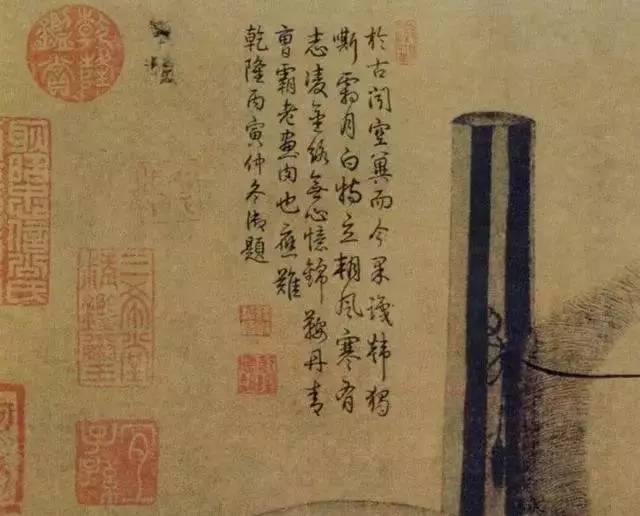 於古聞空冀而今果識韓獨
嘶霜月白特立朔風寒有
志凌金絡無心憶錦鞍丹青
曹霸老畫肉也應難
乾隆丙寅仲冬御題
乾隆鑑賞
三希堂精鑑璽
宜子孫